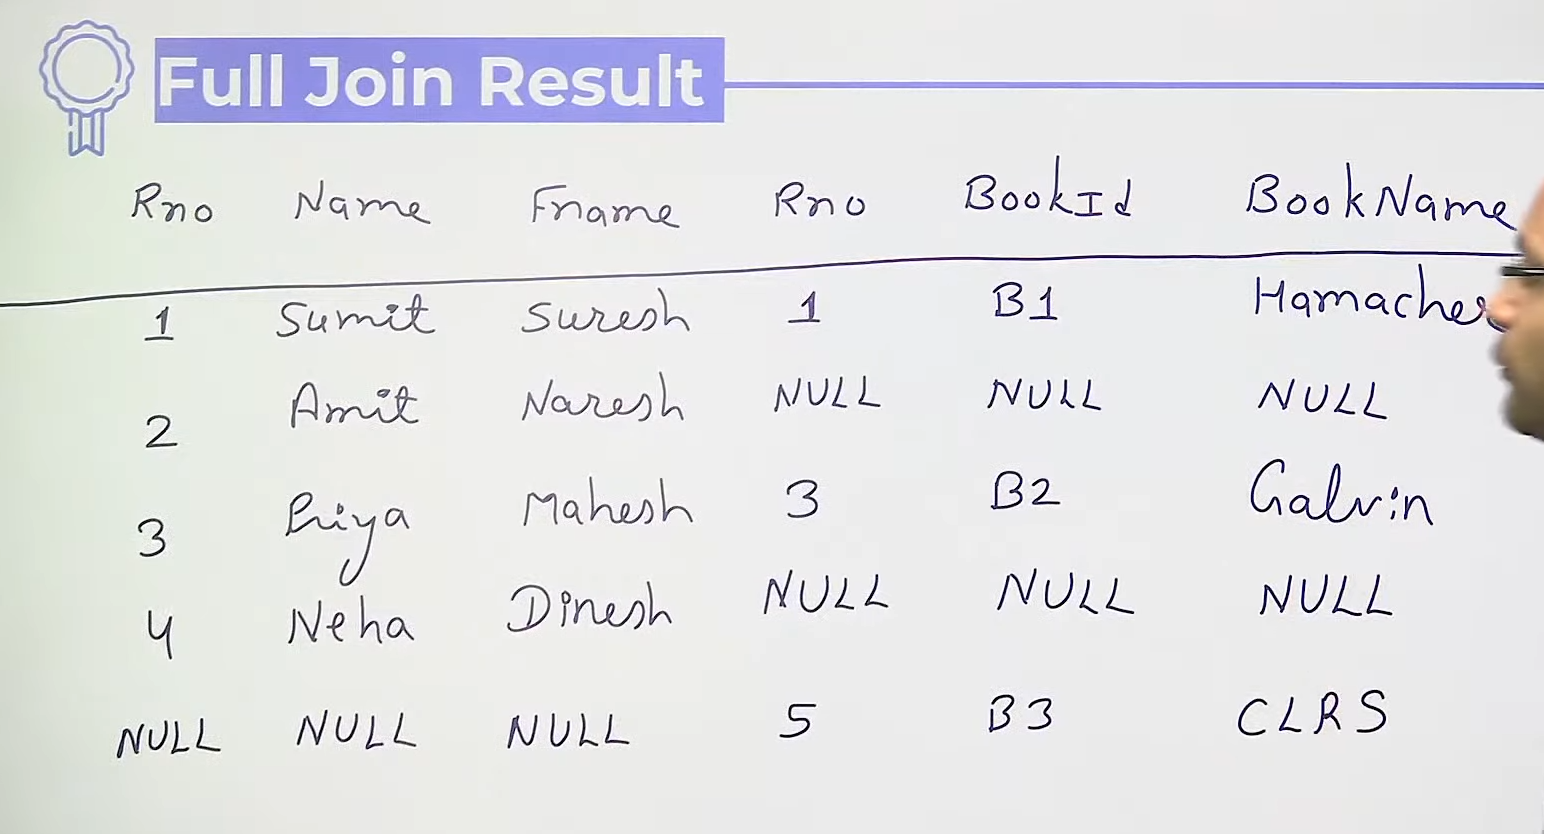 Full Join Result
Rno Name Fname Rno BookId BookName
1 Sumit Suresh 1 B1 Hamacher
2 Amit Naresh NULL NULL NULL
3 Priya Mahesh 3 B2 Galvin
4 Neha Dinesh NULL NULL NULL
NULL NULL NULL 5 B3 CLRS